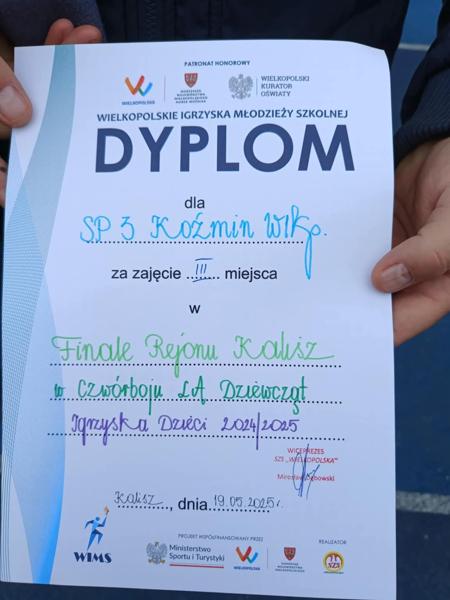 PATRONAT HONOROWY
WIELKOPOLSKA
MARSZAŁEK
WOJEWÓDZTWA
WIELKOPOLSKIEGO
MAREK WOŹNIAK
WIELKOPOLSKI
KURATOR
OŚWIATY
WIELKOPOLSKIE IGRZYSKA MŁODZIEŻY SZKOLNEJ
DYPLOM
dla
SP 3 Koźmin Wlkp.
za zajęcie ..III..... miejsca
w
Finale Rejonu Kalisz
w Czwórboju LA Dziewcząt
Igrzyska Dzieci 2024/2025
WICEPREZES
SZS „WIELKOPOLSKA"
Kalisz, dnia 19.05.2025r.
WIMS
PROJEKT WSPÓŁFINANSOWANY PRZEZ
REALIZATOR
Ministerstwo
Sportu i Turystyki
WIELKOPOLSKA
SZS